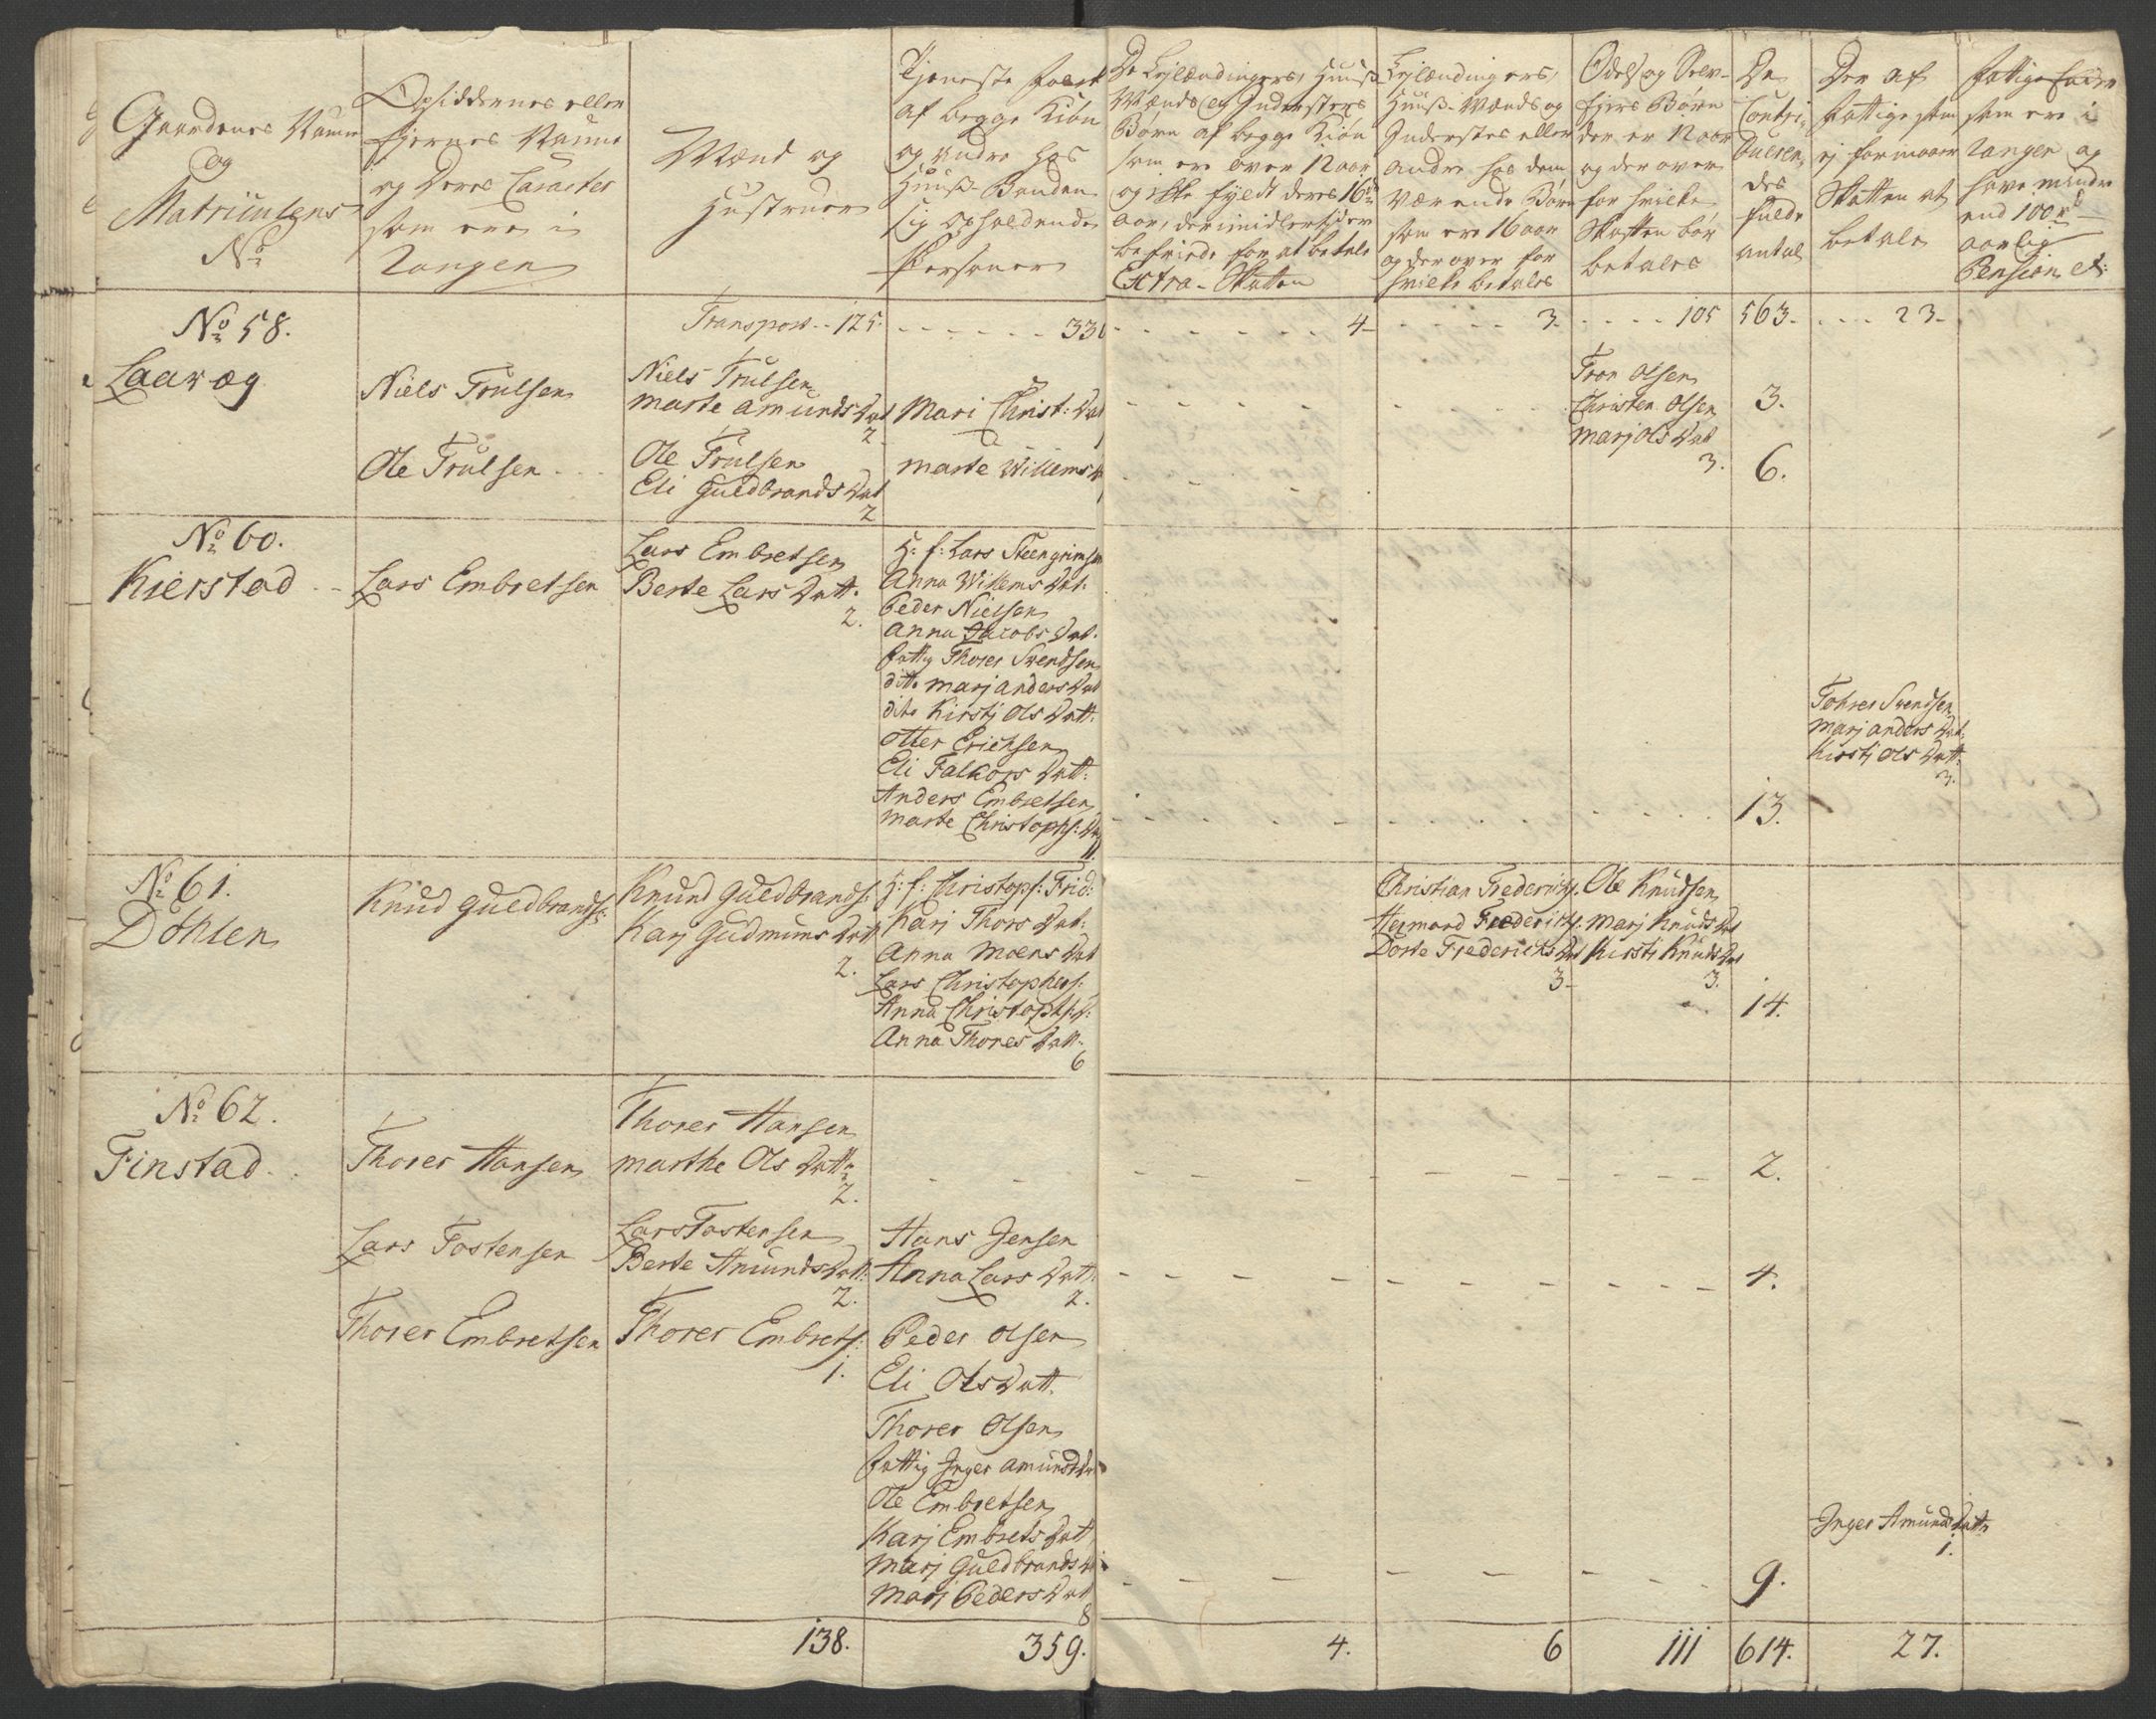 Gaardenes Navne
og
Matriculens
No
Opsiddernes eller
Ejernes Navne
og Deres Caracter
som ere i
Rangen
Mænd og
Hustruer
Tjeneste Folk
af begge Kiøn
og andre hos
Huus-Bonden
sig opholdende
Personer
De Lejlændingers, Huus-
Mænds og Inderstes
Børn af begge Kiøn
som ere over 12 aar
og ikke fyldt deres 16de
aar, der imidlertid ere
befriede for at betale
Extra-Skatten
Lejlændingers,
Huus-Mænds og
Inderstes eller
andre hos dem
værende Børn
som ere 16 aar
og der over for
hvilke betales
Odels og Selv-
Ejers Børn
der er 12 aar
og der over
for hvilke
Skatten bør
betales
De
Contri-
buerendes
fulde
antal
Der af
fattige som
ej formaaer
Skatten at
betale
fattige
som ere i
Rangen og
have mindre
end 100 rd
aarlig
Pension etc:
Transport - - 125. - - - - - - 336 - - - - - - - 4 - - - - - 3. - - - - 105 563. - - - 23.
No 58.
Laaræg
Niels Trulsen
Niels Trulsen
Marte Amunds Dat
2
Mari Christ: Dat
1
3.
Ole Trulsen
Ole Trulsen
Eli Guldbrands Dat
2
Marte Willems D
1
Tron Olsen
Christen Olsen
Marj Ols Dat
3.
6.
No 60.
Kierstad
Lars Embretsen
Lars Embretsen
Berte Lars Datt.
2.
H: f: Lars Steengrims
Anna Willems Dat:
Peder Nielsen
Anna Jacobs Dat.
fattig Thorer Svendsen
ditto Marj Anders Dat
dito Kirstj Ols Datt:
Otter Erichsen
Eli Falkors Datt:
Anders Embretsen
Marte Christoph: Dat
11
13.
Tohrer Svendsen
Marj Anders Dat.
Kirstj Ols Datt:
3.
No 61.
Döhlen
Knud Guldbrands:
Knund Guldbrands:
Karj Gudmuns Datt
2.
H: f: Christoph: Frid:
Karj Thors Dat:
Anna Moens Dat
Lars Christophers:
Anna Christophs:
Anna Thores Datt.
6
Christian Frederichs.
Hermand Frederichs.
Dorte Frederichs Dat
3
Ole Knudsen
Marj Knuds Dat
Kirstj Knuds Dat
3.
14.
No 62.
Finstad
Thorer Hansen
Thorer Hansen
Marthe Ols Datt.
2.
2.
Lars Tostensen
Lars Tostensen
Berte Amunds Datt:
2.
Hans Jensen
Anna Lars Datt:
2.
4.
Thorer Embretsen
Thorer Embrets:
1.
Peder Olsen
Eli Ols Datt.
Thorer Olsen
fattig Inger Amunds Dat
Ole Embretsen
Karj Embrets Datt
Marj Guldbrands Dat
Marj Peders Dat
8
9.
Inger Amunds Datt
1.
138. 359. 4. 6 111 614. 27.